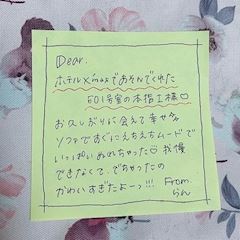 Dear.
ホテルXmasであそんでくれた
501号室の本指T様♡
お久しぶりに会えて幸せ
ソファですぐにえちえちムードで
いっぱいぬれちゃった♡我慢
できなくて、でちゃったの
かわいすぎたよーっ!!!
From.
らん